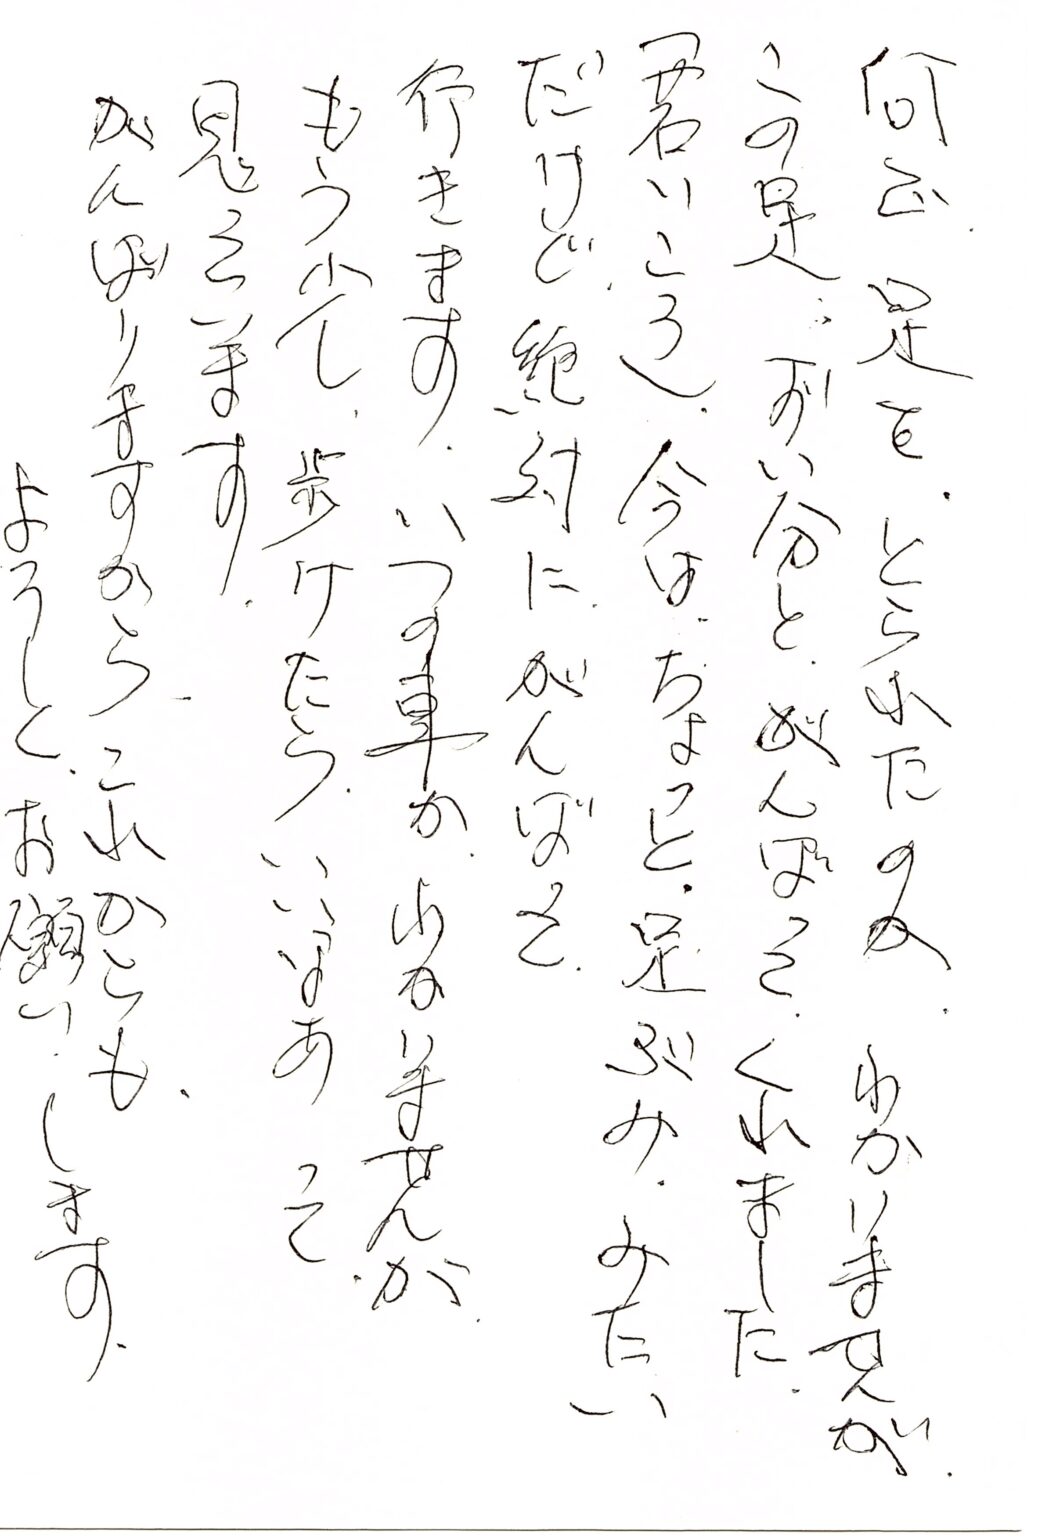 何 足を、とられたのか、わかりませんが、
この足、ずい分と、がんばって、くれました。
「若いころ」、今は、ちょっと、足ぶみ、みたい
だけど、絶対に、がんばって、
行きます。いつの事か、わかりませんが、
もう少し、歩けたら、いいなあ って、
思っています。
がんばりますから、これからも、
よろしく、お願い、します。